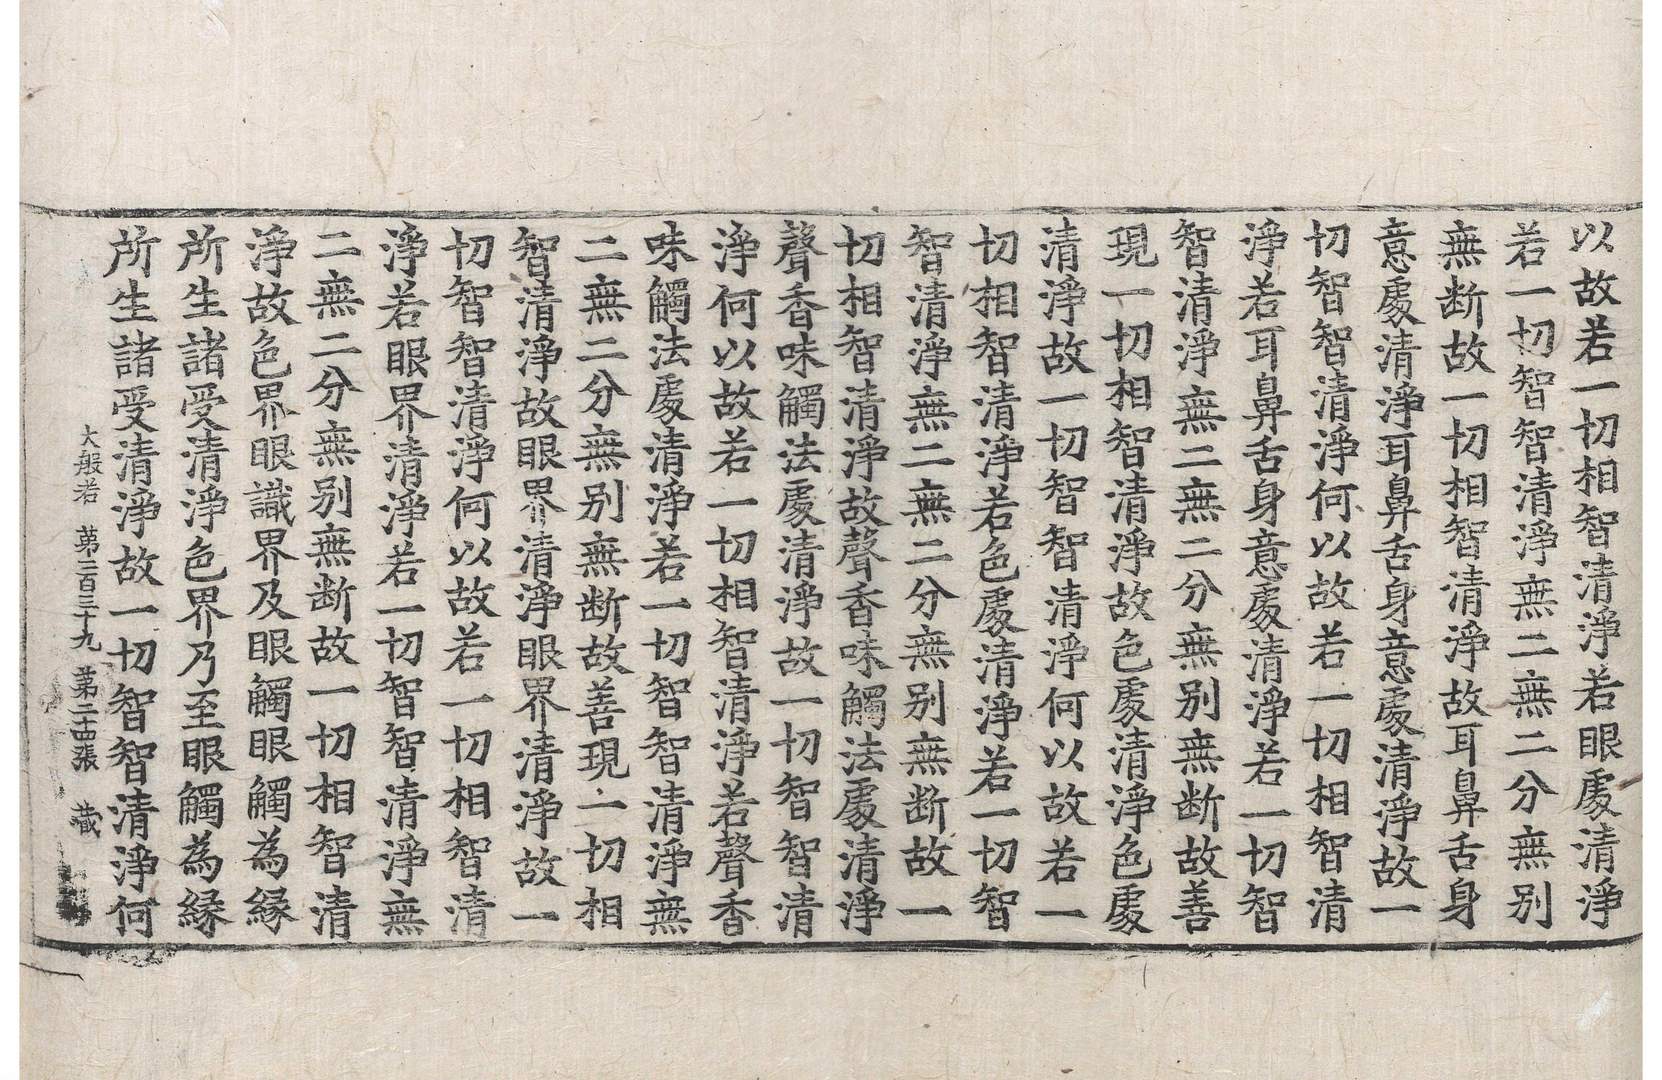 以故若一切相智清淨若眼處清淨
若一切智智清淨無二無二分無别
無断故一切相智清淨故耳鼻舌身
意處清淨耳鼻舌身意處清淨故一
切智智清淨何以故若一切相智清
淨若耳鼻舌身意處清淨若一切智
智清淨無二無二分無别無断故善
現一切相智清淨故色處清淨色處
清淨故一切智智清淨何以故若一
切相智清淨若色處清淨若一切智
智清淨無二無二分無别無断故一
切相智清淨故聲香味觸法處清淨
聲香味觸法處清淨故一切智智清
淨何以故若一切相智清淨若聲香
味觸法處清淨若一切智智清淨無
二無二分無别無断故善現一切相
智清淨故眼界清淨眼界清淨故一
切智智清淨何以故若一切相智清
淨若眼界清淨若一切智智清淨無
二無二分無别無断故一切相智清
淨故色界眼識界及眼觸眼觸為緣
所生諸受清淨色界乃至眼觸為緣
所生諸受清淨故一切智智清淨何
大般若 第二百三十九 第二十四張 藏